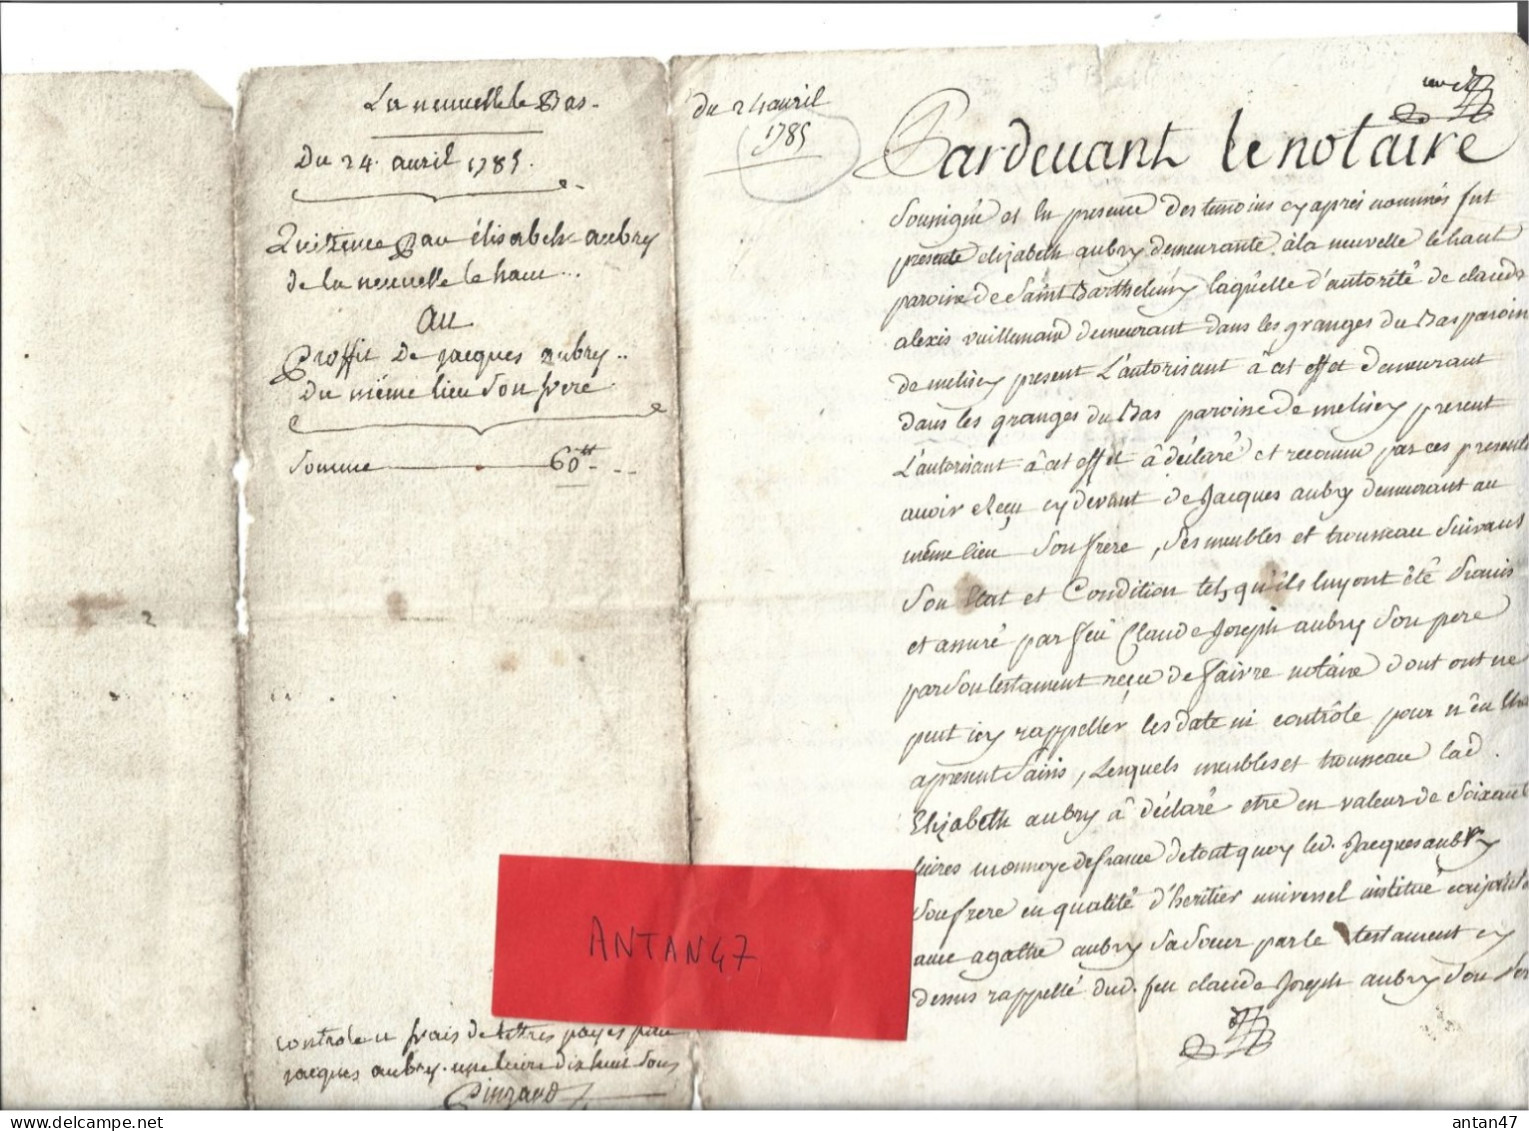 La neuvelle le Bas.
Du 24. avril 1785.
Quittence Par élisabeth aubry
de la neuvelle le haut...
au
Proffit De jacques aubry..
Du même lieu son frere
Somme 60tt
controle et frais de lettres payes par
jacques aubry. une livre dix huit sous
Du 24 avril
1785
Pardevant le notaire
Soussigné et en presence des temoins cy aprés nommés fut
presente elizabeth aubry demeurante à la neuvelle le haut
paroisse de Saint Barthelemy laquelle d'autorité de claude
alexis vuillemard demeurant dans les granges du Bas paroisse
de melisey present L'autorisant â cet effet demeurant
dans les granges du Bas paroisse de melisey present
L'autorisant â cet effet â déclaré et reconnu par ces presentes
avoir reçu cy devant de Jacques aubry demeurant au
même lieu Son frere, Ses meubles et trousseau Suivant
Son Etat et Condition tels qu'ils luy ont été
et assuré par feu Claude Joseph aubry Son pere
par Son testament reçu de faivre notaire dont on ne
peut icy rappeller les date ni contrôle pour n'en être
apresent Saisis, Lesquels meubles et trousseau lad.
Elizabeth aubry â déclaré etre en valeur de Soixante
livres monnoye de france de tout quoy led. Jacques aubry
Son frere en qualité d'heritier universel institué conjointement
avec agathe aubry Sa Soeur par le testament cy
dessus rappellé dud. feu claude Joseph aubry Son Pere
ANTAN47
antan47